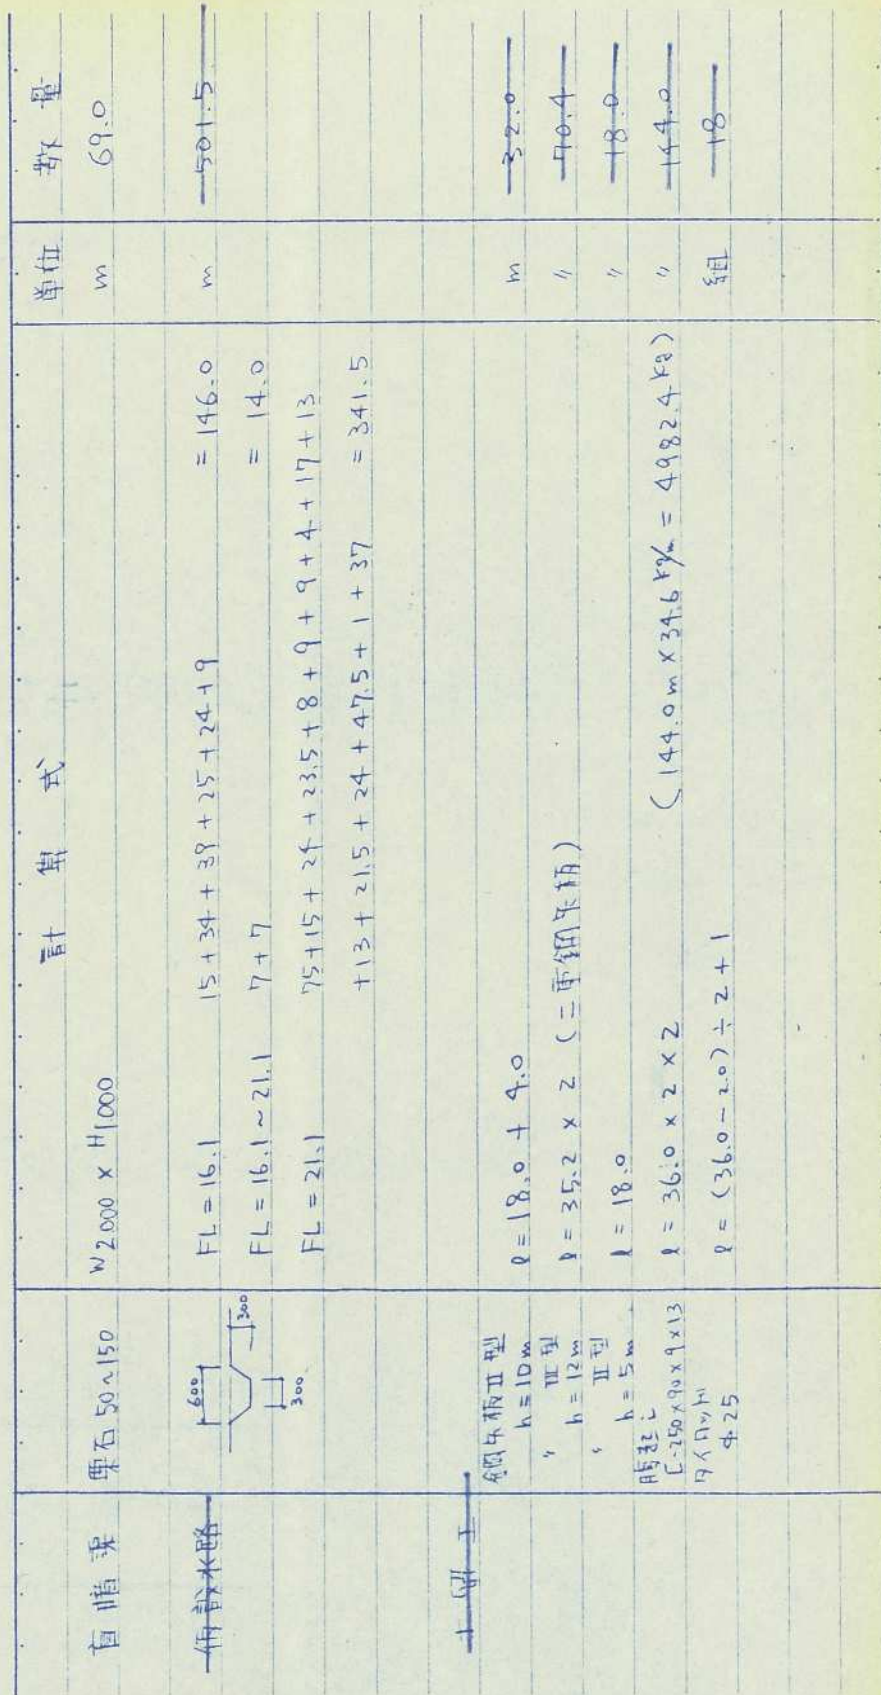 計算式 単位 数量
盲暗渠 栗石 50~150 W2000 × H1000 m 69.0
仮設水路 FL = 16.1 15 + 34 + 39 + 25 + 24 + 9 = 146.0 m 501.5
600
300
300
FL = 16.1 ~ 21.1 7 + 7 = 14.0
FL = 21.1 75 + 15 + 24 + 23.5 + 8 + 9 + 9 + 4 + 17 + 13
+ 13 + 21.5 + 24 + 47.5 + 1 + 37 = 341.5
土留工 鋼矢板 II型
h = 10m ℓ = 18.0 + 4.0 m 32.0
〃 III型
h = 12m ℓ = 35.2 × 2 (二重鋼矢板) 〃 70.4
〃 II型
h = 5m ℓ = 18.0 〃 18.0
腹起し
[-250×90×9×13 ℓ = 36.0 × 2 × 2 (144.0m × 34.6kg/m = 4982.4kg) 〃 144.0
タイロッド
φ25 ℓ = (36.0 - 2.0) ÷ 2 + 1 組 18